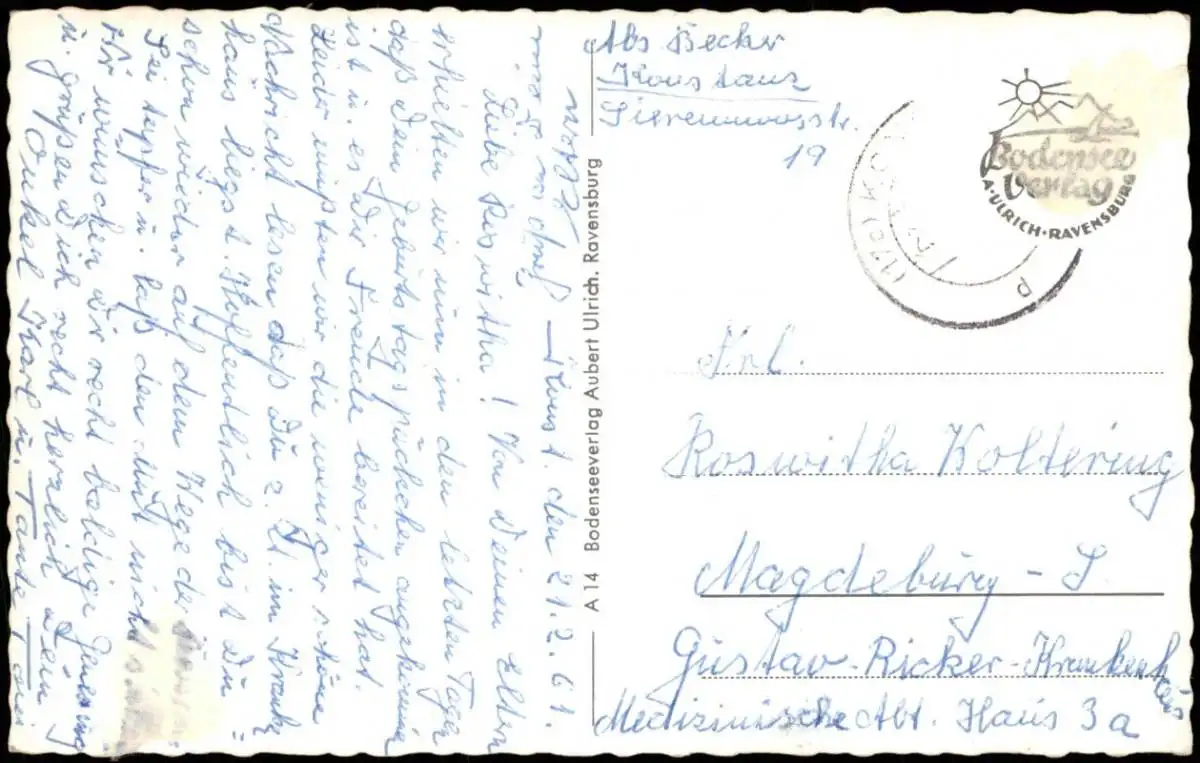 Konst. den 21.2.61.
Liebe Roswitha! Von Deinen Eltern
erhielten wir nun in den letzten Tagen
daß Dein Geburtstagspäckchen angekommen
ist u. es Dir Freude bereitet hat.
Leider mußten wir die weniger schöne
Nachricht lesen daß Du z. Zt. im Kranken
haus liegst. Hoffentlich bist Du
schon wieder auf dem Wege der
Sei tapfer u. laß den Mut nicht
Wir wünschen Dir recht baldige Genesung
u. grüßen Dich recht herzlich Dein
Onkel Karl u. Tante
A 14 Bodenseeverlag Aubert Ulrich. Ravensburg
Abs Becker
Konstanz
19
Bodensee
Verlag
A·ULRICH·RAVENSBURG
(17b) KO
Frl.
Roswitha Koltering
Magdeburg - S.
Gustav-Ricker-Krankenhaus
Medizinische Abt. Haus 3a